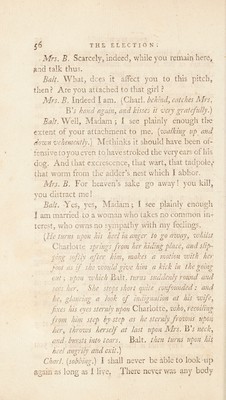 56 THE ELECTION:
Mrs. B. Scarcely, indeed, while you remain here,
and talk thus.
Balt. What, does it affect you to this pitch,
then? Are you attached to that girl?
Mrs. B. Indeed I am. (Charl. behind, catches Mrs.
B's hand again, and kisses it very gratefully.)
Balt. Well, Madam; I see plainly enough the
extent of your attachment to me. (walking up and
down vehemently.) Methinks it should have been of-
fensive to you even to have stroked the very ears of his
dog. And that excrescence, that wart, that tadpole,
that worm from the adder's nest which I abhor.
Mrs. B. For heaven's sake go away! you kill,
you distract me!
Balt. Yes, yes, Madam; I see plainly enough
I am married to a woman who takes no common in-
terest, who owns no sympathy with my feelings.
(He turns upon his heel in anger to go away, whilst
Charlotte springs from her hiding place, and slip-
ping softly after him, makes a motion with her
foot as if she would give him a kick in the going
out; upon which Balt. turns suddenly round and
sees her. She stops short quite confounded: and
he, glancing a look of indignation at his wife,
fixes his eyes sternly upon Charlotte, who, recoiling
from him step by step as he sternly frowns upon
her, throws herself at last upon Mrs. B's neck,
and bursts into tears. Balt. then turns upon his
heel angrily and exit.)
Charl. (sobbing.) I shall never be able to look up
again as long as I live, There never was any body